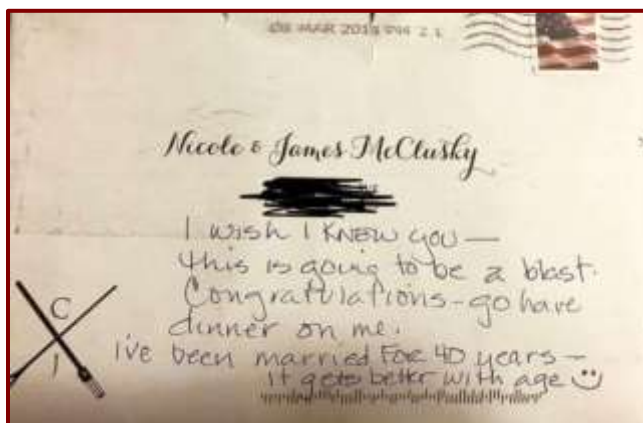 08 MAR 201 PM 2 L
Nicole & James McClusky
I wish I KNEW you —
this is going to be a blast.
Congratulations - go have
dinner on me.
i've been married For 40 years —
it gets better with age
C
J